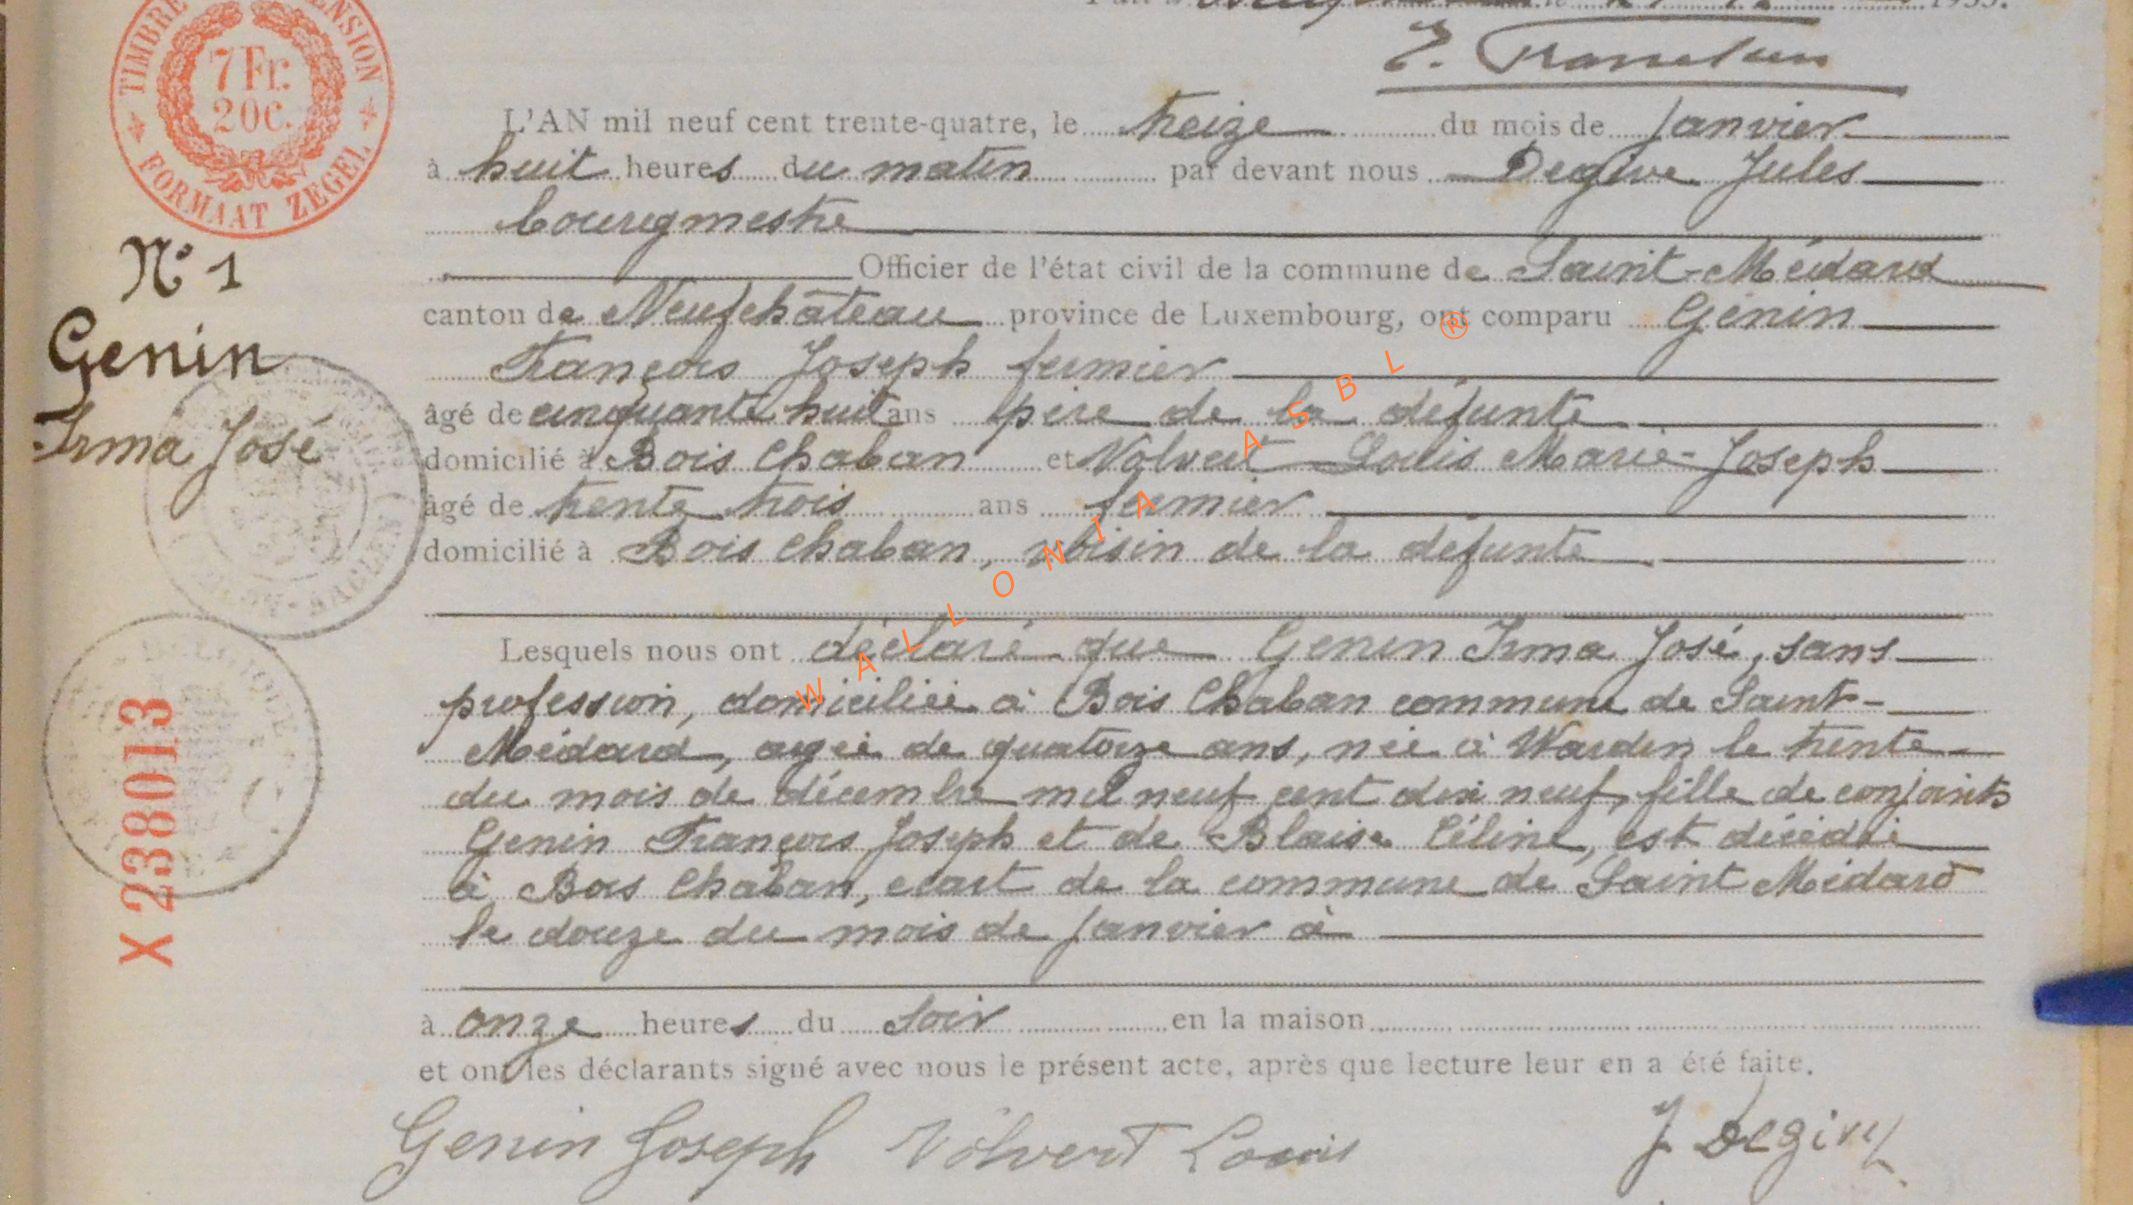 1933.
L'AN mil neuf cent trente-quatre, le treize du mois de Janvier
à huit heures du matin par devant nous Degive Jules
bourgmestre
Officier de l'état civil de la commune de Saint-Médard
canton de Neufchâteau province de Luxembourg, ont comparu Genin
François Joseph fermier
âgé de cinquante huit ans père de la défunte
domicilié à Bois Chaban et Volvert Louis Marie-Joseph
âgé de trente trois ans fermier
domicilié à Bois Chaban, voisin de la défunte
Lesquels nous ont déclaré que Genin Irma José, sans
profession, domiciliée à Bois Chaban commune de Saint-
Médard, agée de quatorze ans, née à Wardin le trente
du mois de décembre mil neuf cent dix neuf, fille de conjoints
Genin François Joseph et de Blaise Céline, est décédée
à Bois Chaban, ecart de la commune de Saint Médard
le douze du mois de Janvier à
à onze heures du soir en la maison
et ont les déclarants signé avec nous le présent acte, après que lecture leur en a été faite.
Genin Joseph Volvert Louis J Degive
TIMBRE DIMENSION
7 Fr.
20c.
FORMAAT ZEGEL
N° 1
Genin
Irma José
X 238013
WALLONIA ASBL ®